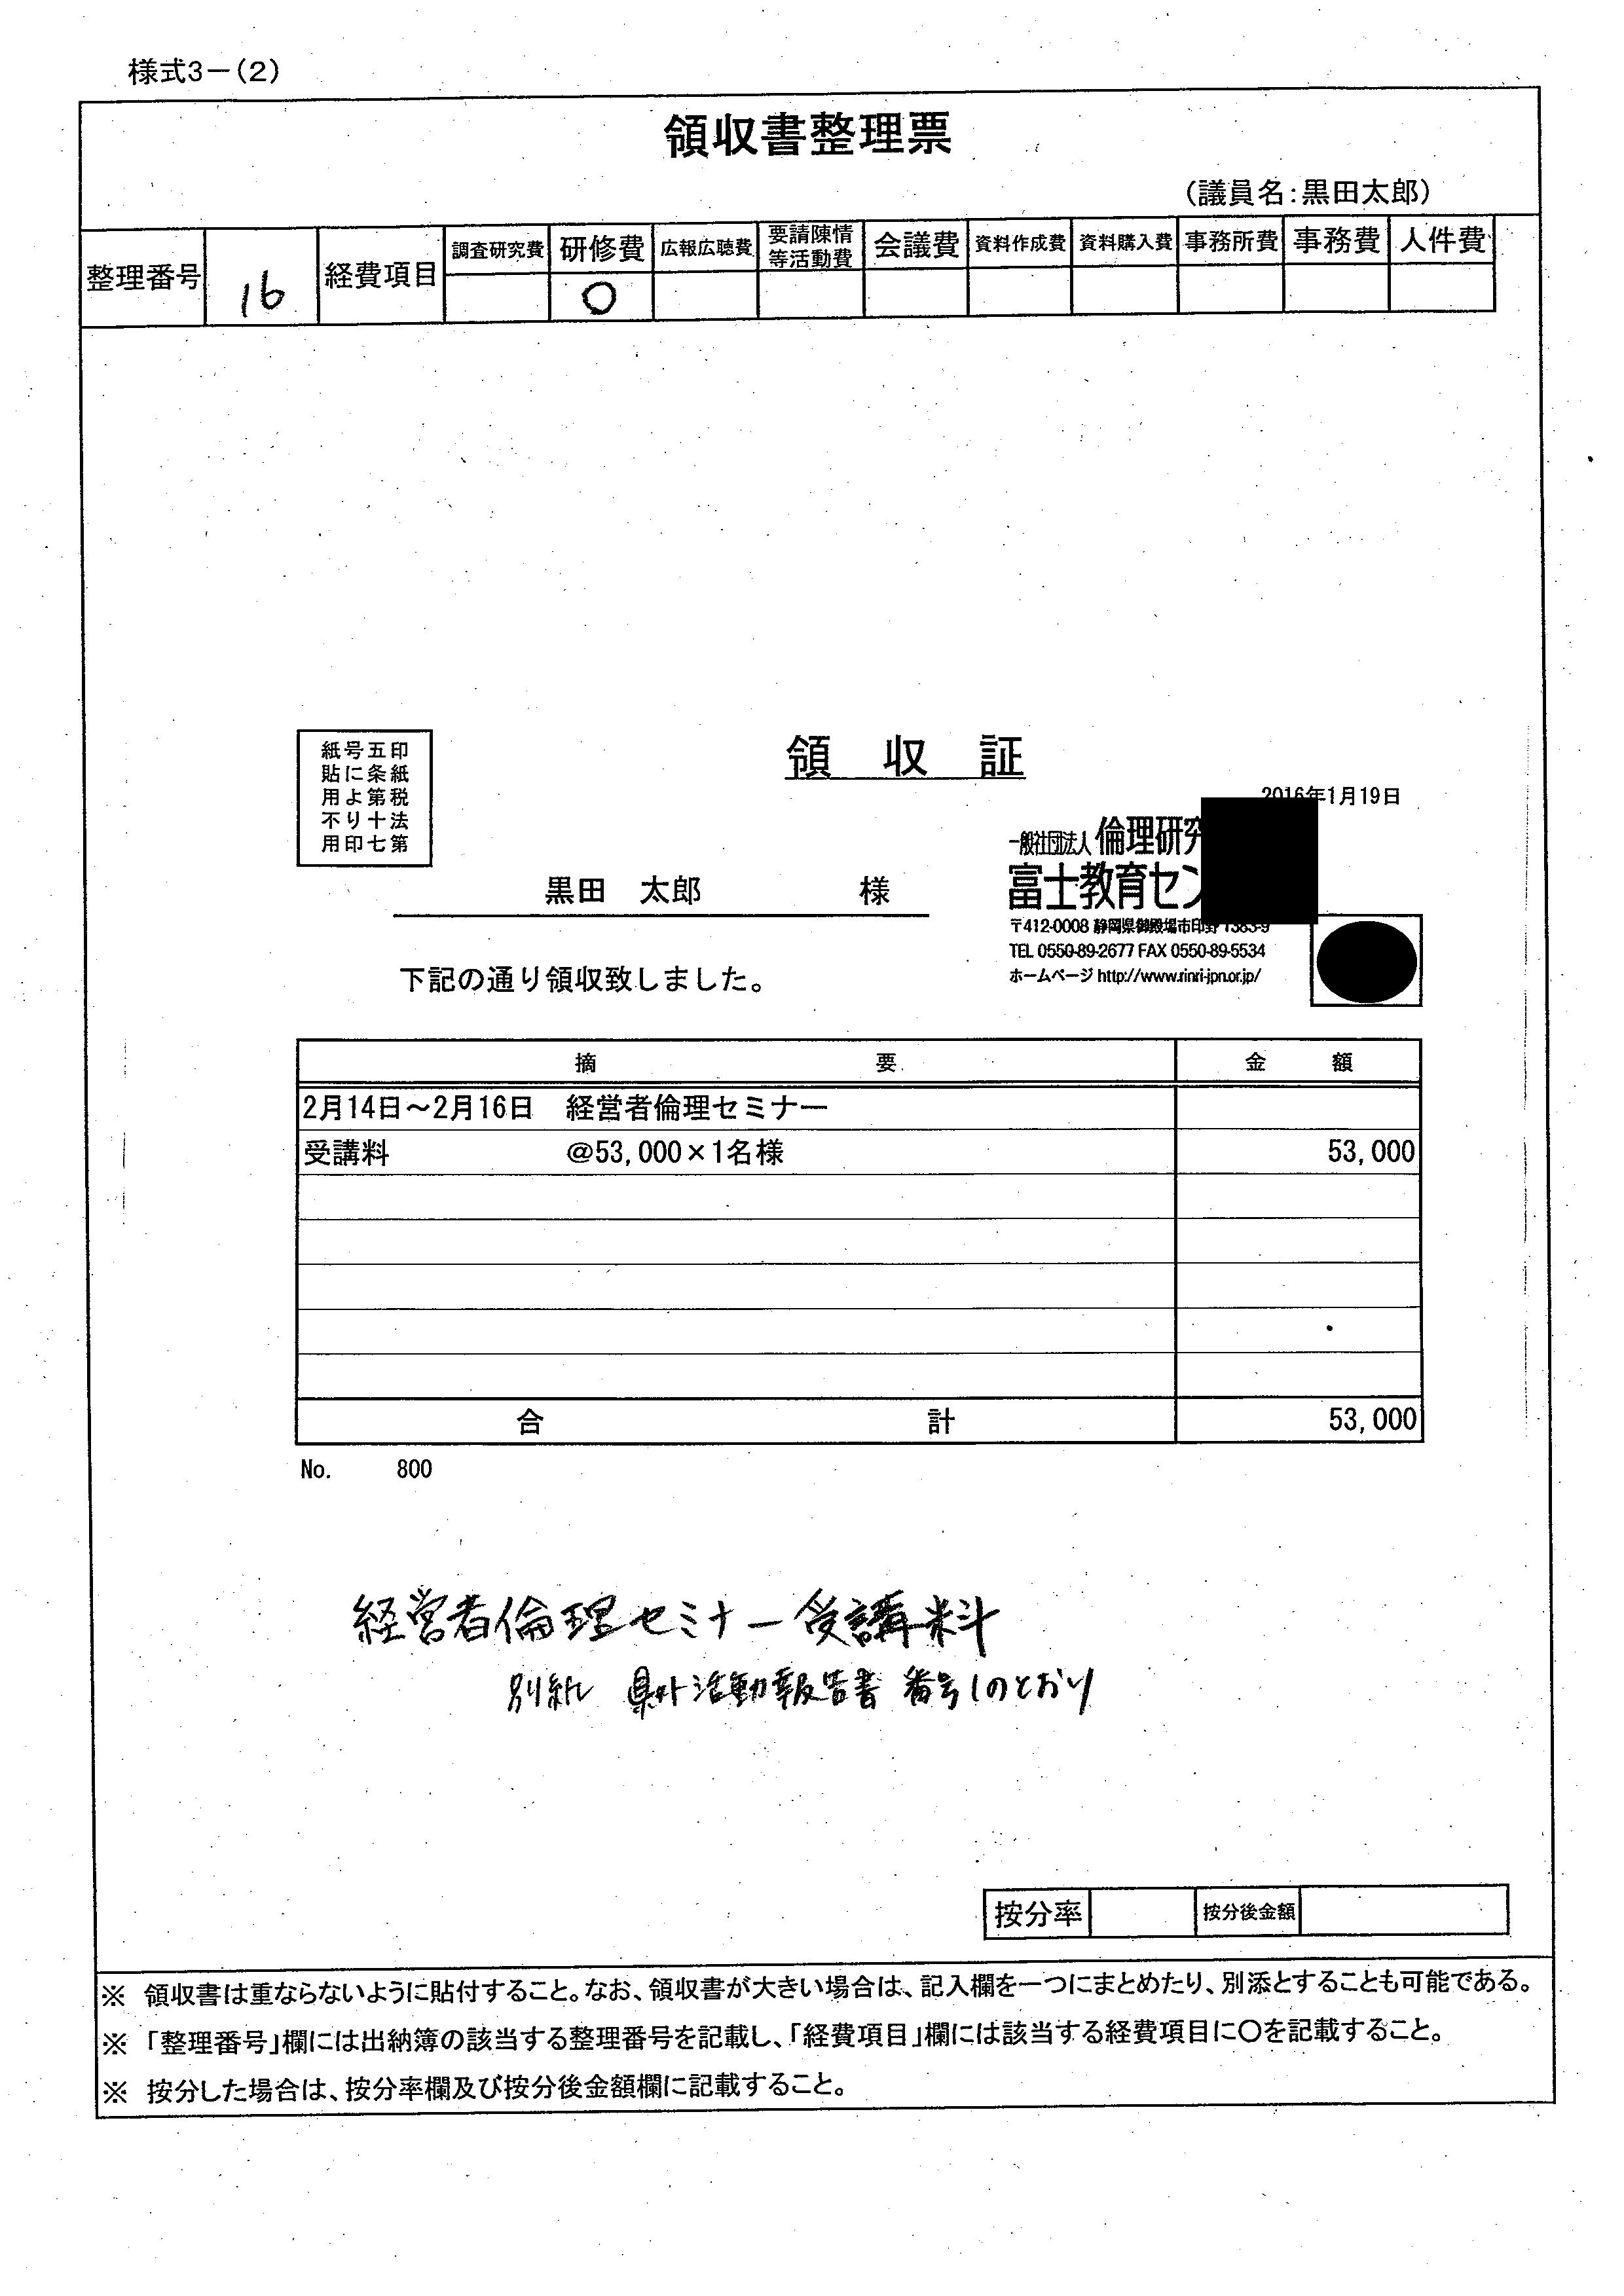 様式3－(2)
領収書整理票
(議員名:黒田太郎)
整理番号 16 経費項目 調査研究費 研修費 広報広聴費 要請陳情等活動費 会議費 資料作成費 資料購入費 事務所費 事務費 人件費
○
印紙税法第
五条第十七
号により印
紙貼用不用
領収証
2016年1月19日
一般社団法人 倫理研究
富士教育セン
〒412-0008 静岡県御殿場市印野 1383-9
TEL 0550-89-2677 FAX 0550-89-5534
ホームページ http://www.rinri-jpn.or.jp/
黒田 太郎 様
下記の通り領収致しました。
摘要 金額
2月14日～2月16日 経営者倫理セミナー
受講料 @53,000×1名様 53,000
合計 53,000
No. 800
経営者倫理セミナー受講料
別紙 県外活動報告書 番号1のとおり
按分率 按分後金額
※ 領収書は重ならないように貼付すること。なお、領収書が大きい場合は、記入欄を一つにまとめたり、別添とすることも可能である。
※ 「整理番号」欄には出納簿の該当する整理番号を記載し、「経費項目」欄には該当する経費項目に〇を記載すること。
※ 按分した場合は、按分率欄及び按分後金額欄に記載すること。